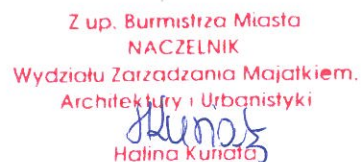 Z up. Burmistrza Miasta
NACZELNIK
Wydziału Zarządzania Majątkiem.
Architektury i Urbanistyki
Halina Kunata